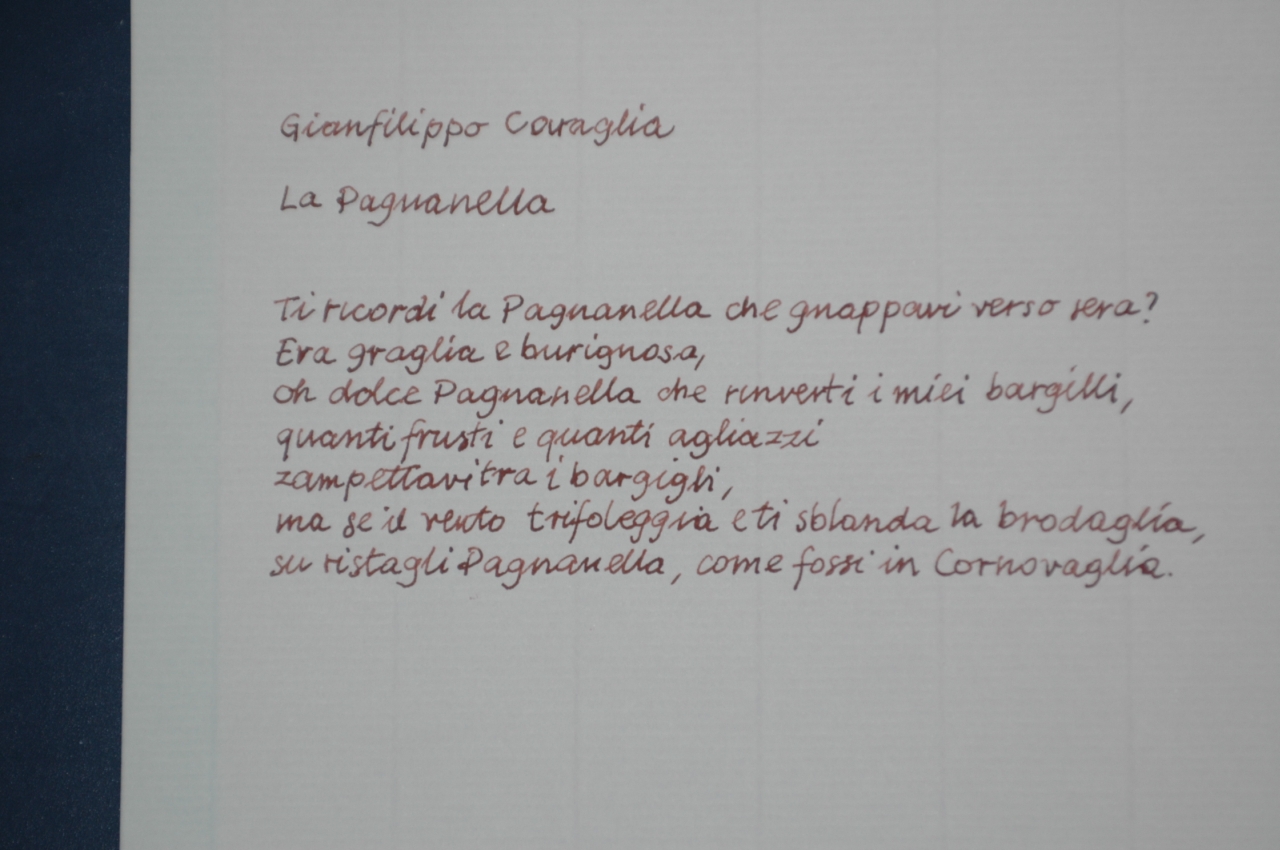 Gianfilippo Cavaglia
La Pagnanella
Ti ricordi la Pagnanella che gnappavi verso sera?
Era graglia e burignosa,
oh dolce Pagnanella che rinverti i miei bargilli,
quanti frusti e quanti agliazzi
zampettavi tra i bargigli,
ma se il vento trifoleggia e ti sblanda la brodaglia,
su ristagli Pagnanella, come fossi in Cornovaglia.